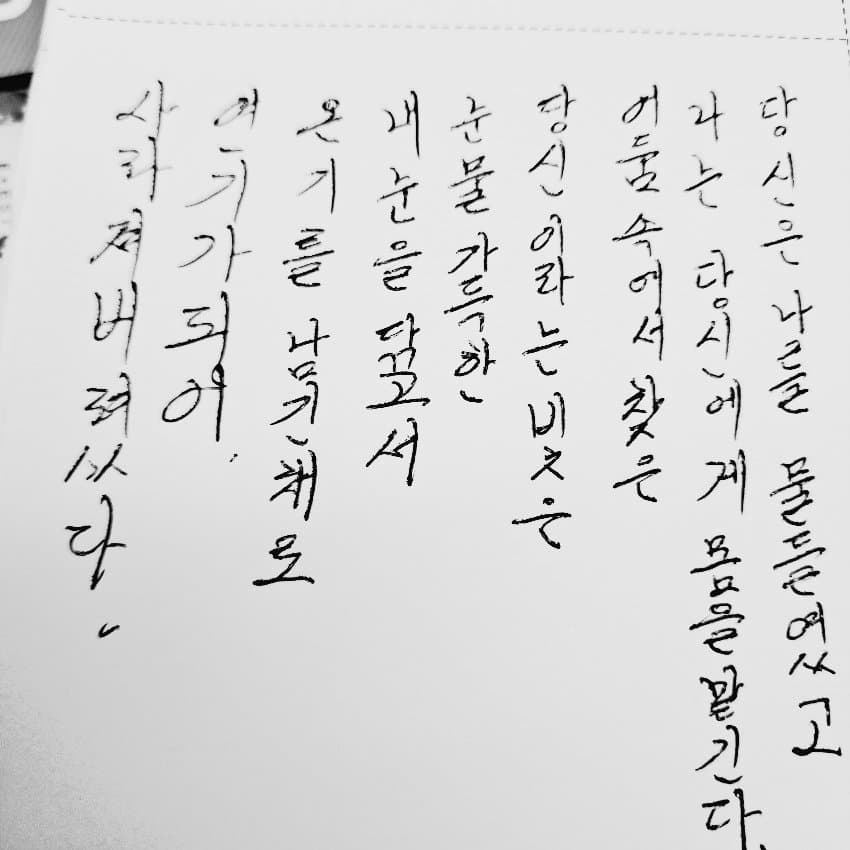 당신은 나를 물들였고
나는 당신에게 몸을 맡긴다.
어둠 속에서 찾은
당신이라는 빛은
눈물 가득한
내 눈을 닮고서
온기를 남긴채로
연기가 되어
사라져버렸다.